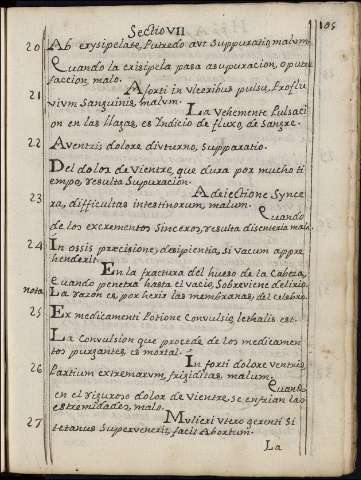 Sectio VII
105
20 Ab erysipelate, Putredo aut Suppuratio, malum.
Quando la erisipela pasa asupuracion, o putre
faccion, malo.
21 A forti in ulceribus pulsu, Proflu
vium Sanguinis, malum.
La vehemente Pulsaci
on en las llagas, es Yndicio de fluxo, de Sangre.
22 A ventris dolore diuturno, Supparatio.
Del dolor de Vientre, que dura por mucho ti
empo, resulta Supuracion.
23 A deiectione Synce
ra, difficultas intestinorum, malum.
Quando
de los excrementos Sinceros, resulta disenteria malo.
24 In ossis praecisione, desipientia, si vacum appre
henderit.
En la fractura del hueso de la Cabeza,
quando penetra hasta el vacio, Sobreviene delirio.
nota La razon es, por herir las membranas, del celebro.
25 Ex medicamenti Potione Convulsio, lethalis est.
La Convulsion que procede de los medicamen
tos purgantes, es mortal.
26 In forti dolore ventris,
Partium extremarum, frigiditas malum.
Quando
en el riguroso dolor de Vientre, se enfrian las
estremidades, malo.
27 Mulieri utero gerenti Si
tetanus Supervenerit, facit Abortum.
La